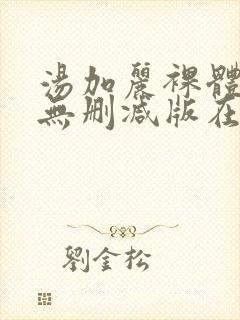 湯加麗裸體
無刪減版在
劉金松